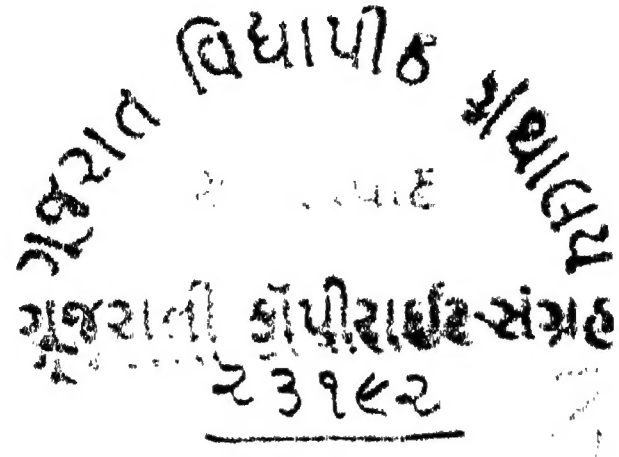 ગૂજરાત વિદ્યાપીઠ ગ્રંથાલય
ગૂજરાતી કૉપીરાઈટ-સંગ્રહ
૨૩૧૯૨